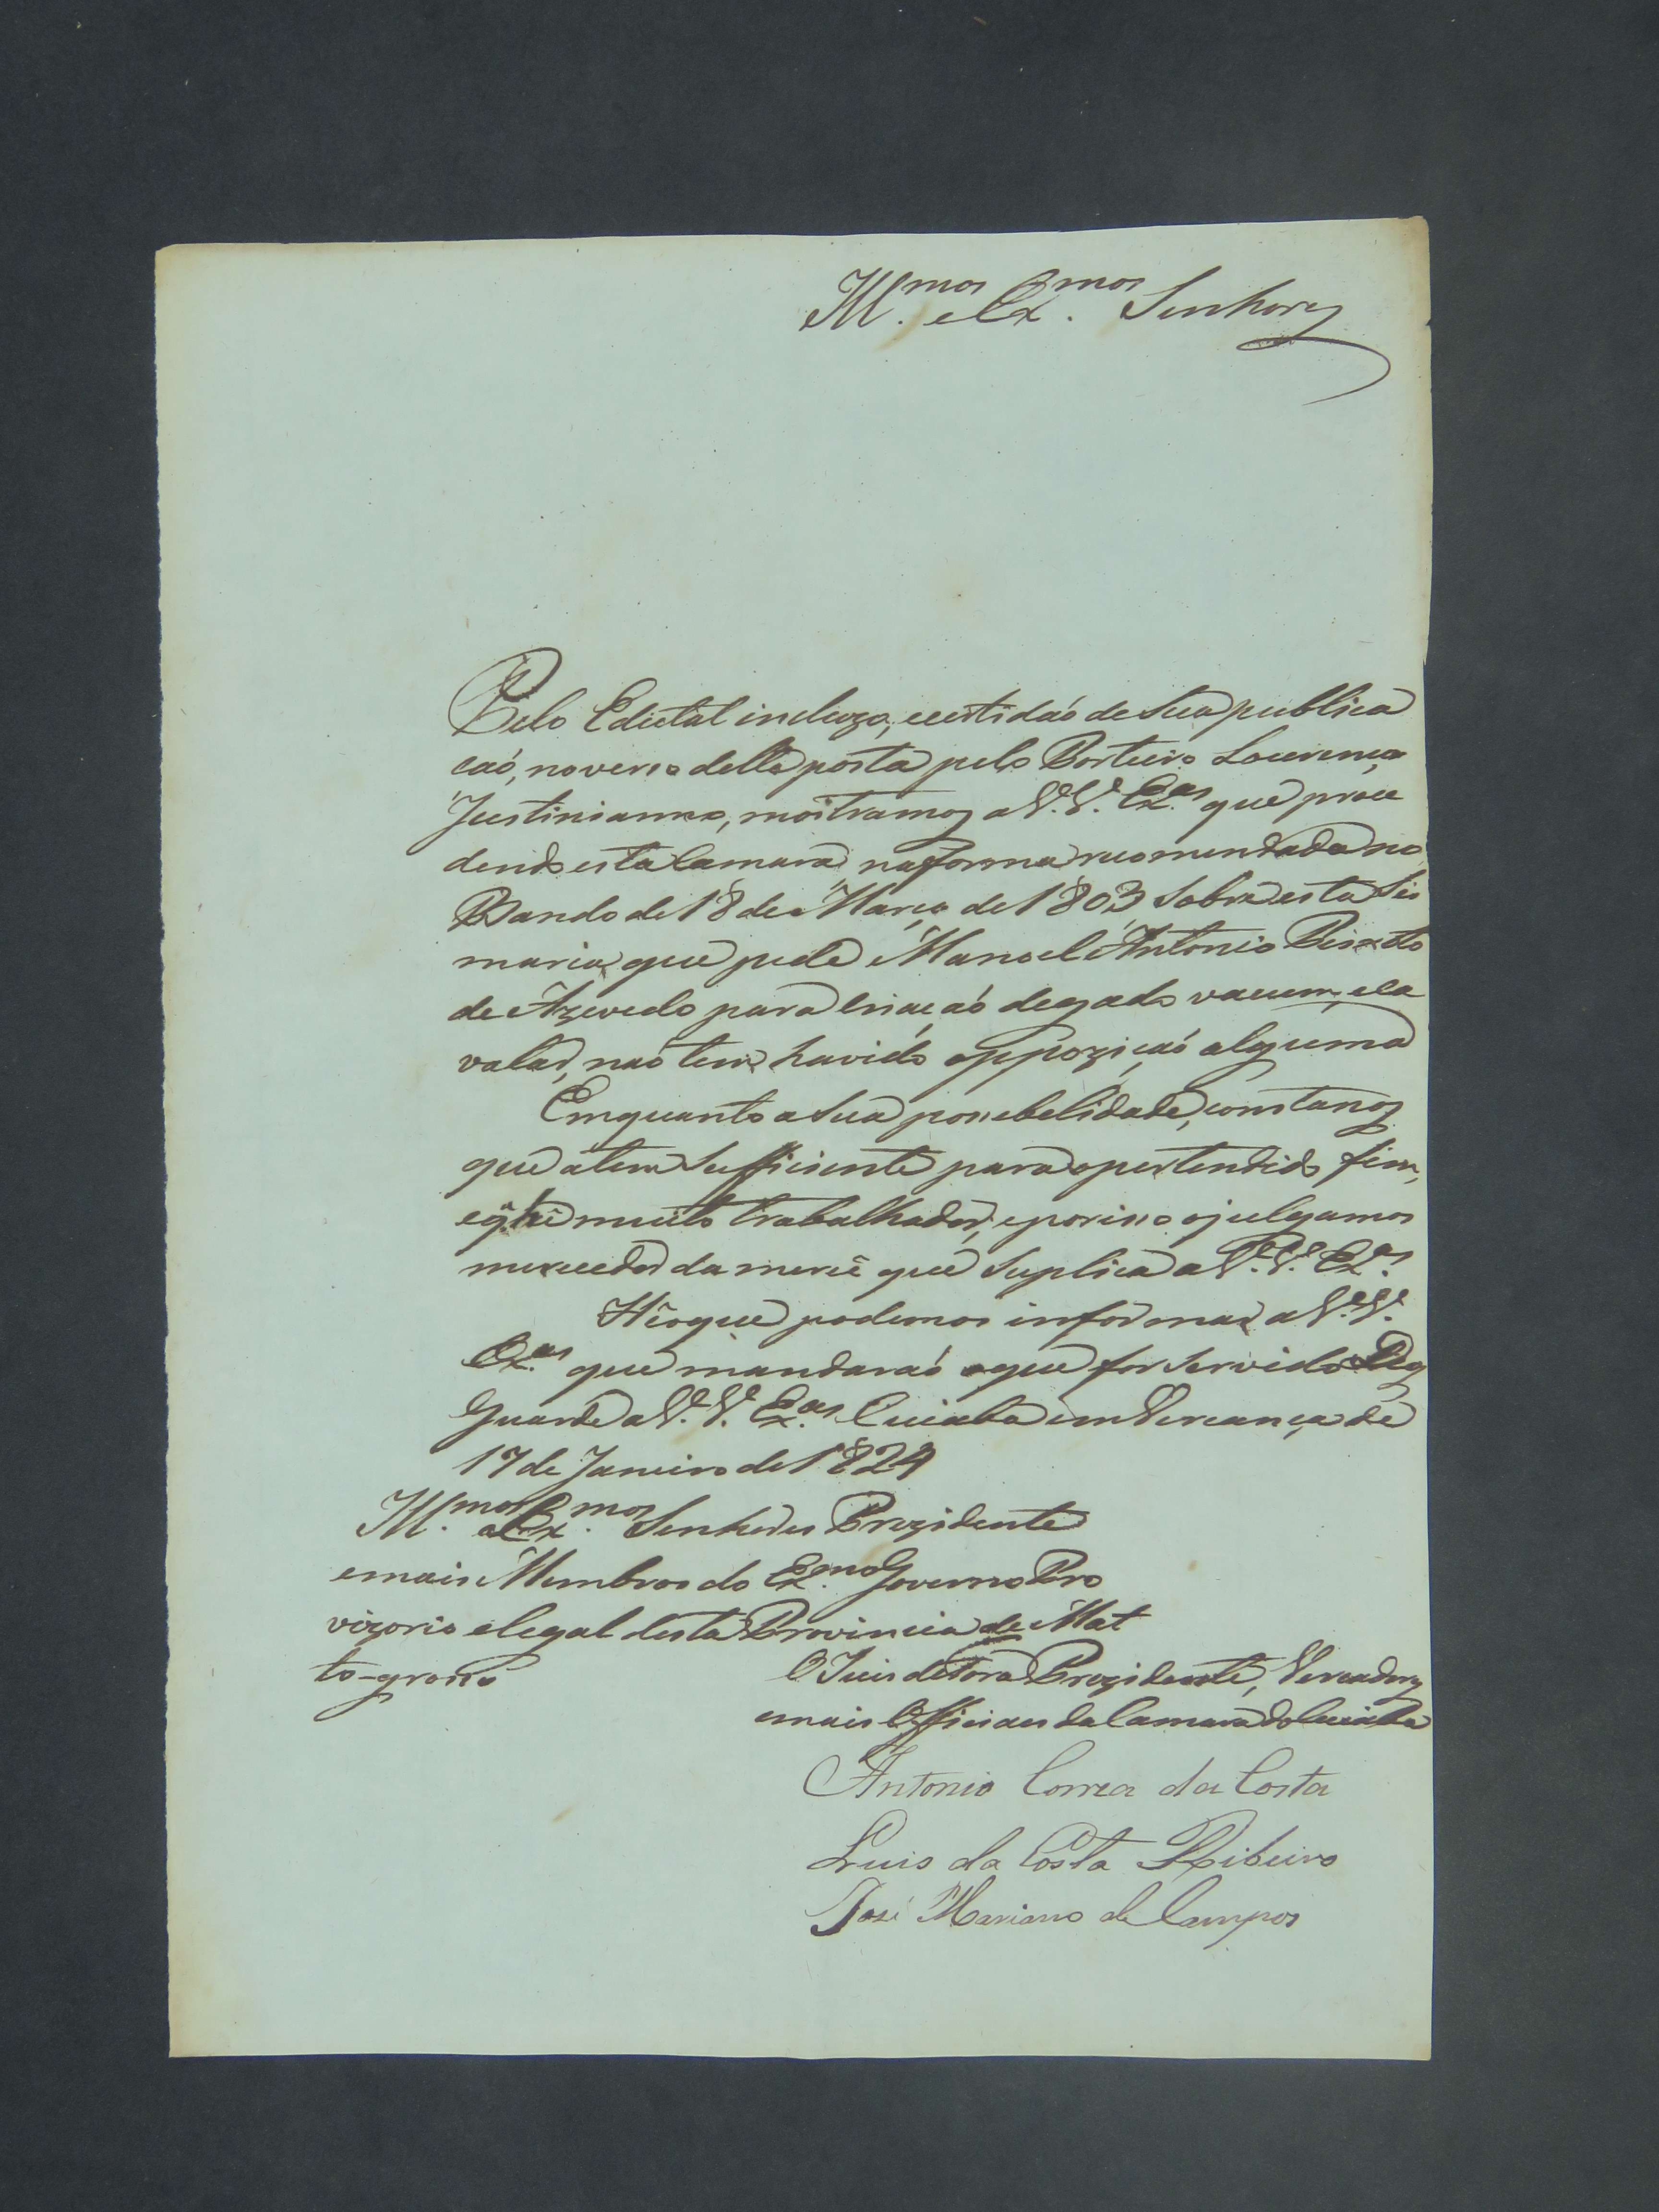 Ill.mos eEx.mos Senhores
Pelo Edictal incluzo, ecertidaó de Sua publica
caó, noverso delle posta pelo Porteiro Lourenço
Justinianno, mostramos aV.V. Ex.as que proce
dendo esta Camara na forma recomendada no
Bando de 18 de Março de 1803 Sobre esta Ses
maria que pede Manoel Antonio Peixoto
de Azevedo para criaçaó degado vacum, eca
valar, naó tem havido oppoziçaó alguma
Emquanto a Sua possebelidade, constanos
que atem Sufficiente para opertendido fim,
eq̃ hê muito trabalhador, eporisso ojulgamos
merecedor da mercê que Suplica aV.V. Ex.as
Hê oque podemos informar aV.V.
Ex.as que mandaraó oque for Servido Deos
Guarde aV.V. Ex.as Cuiaba em Vereança de
17 de Janeiro de 1824
Ill.mos eEx.mos Senhores Prezidente
emais Membros do Ex.mo Governo Pro
vizorio elegal desta Provincia de Mat
to-grosso
O Juis defora Prezidente, Vereadores
emais Officiaes da Camara do Cuiaba
Antonio Correa da Costa
Luis da Costa Ribeiro
José Mariano de Campos